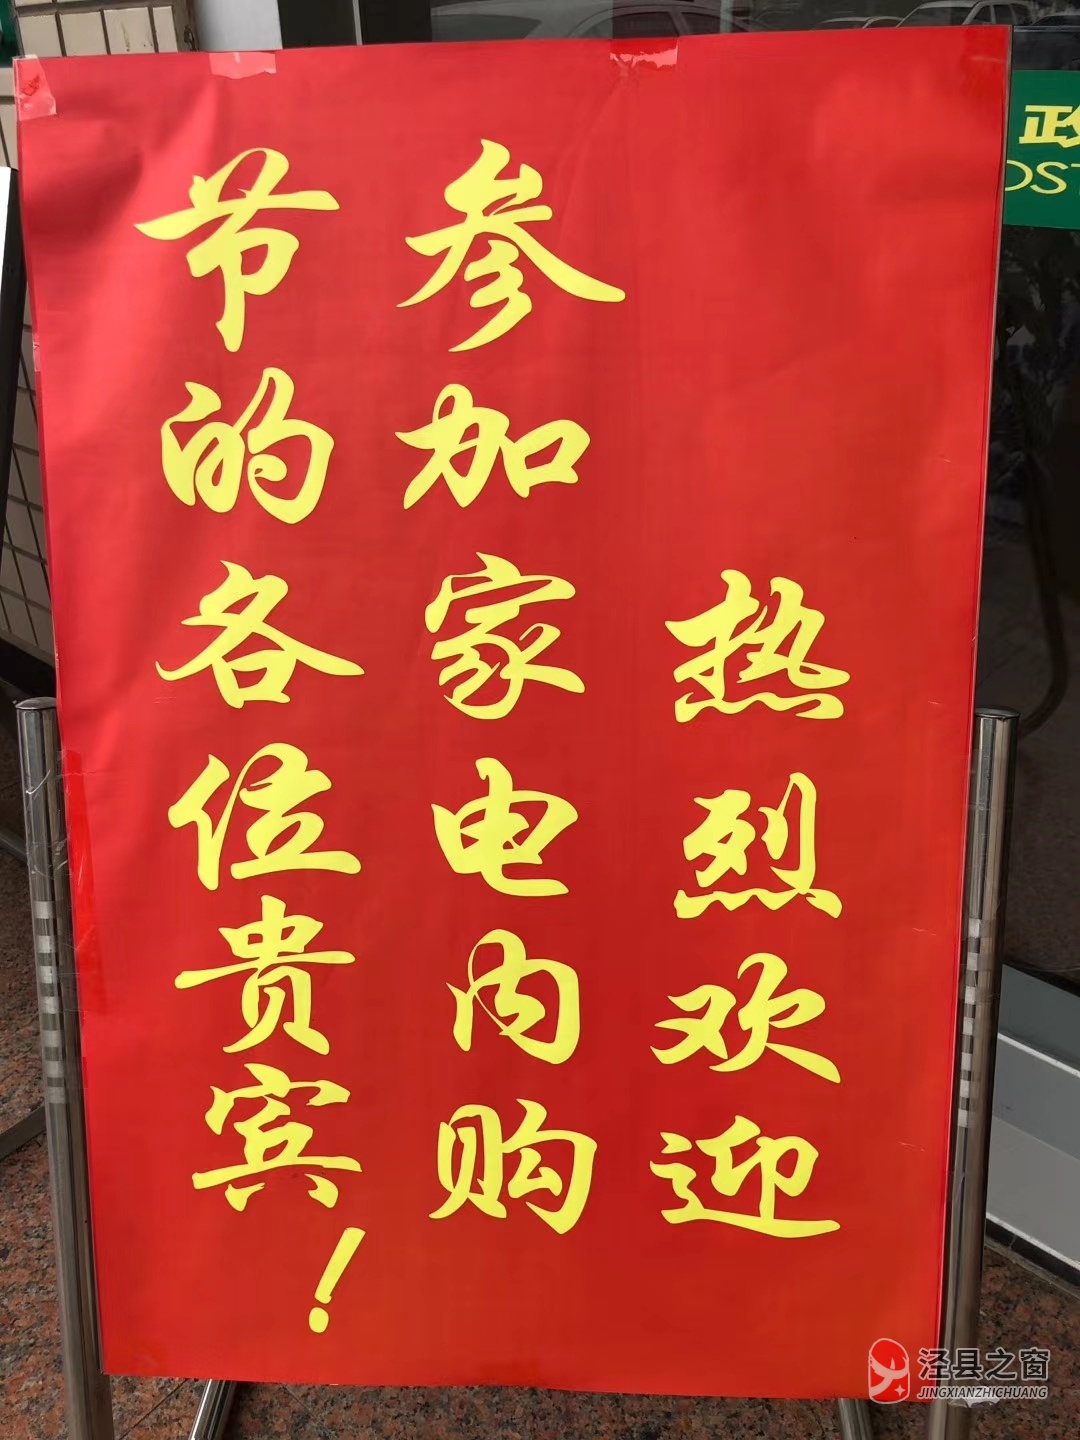 热烈欢迎
参加家电内购
节的各位贵宾！
政
OST
泾县之窗
JINGXIANZHICHUANG